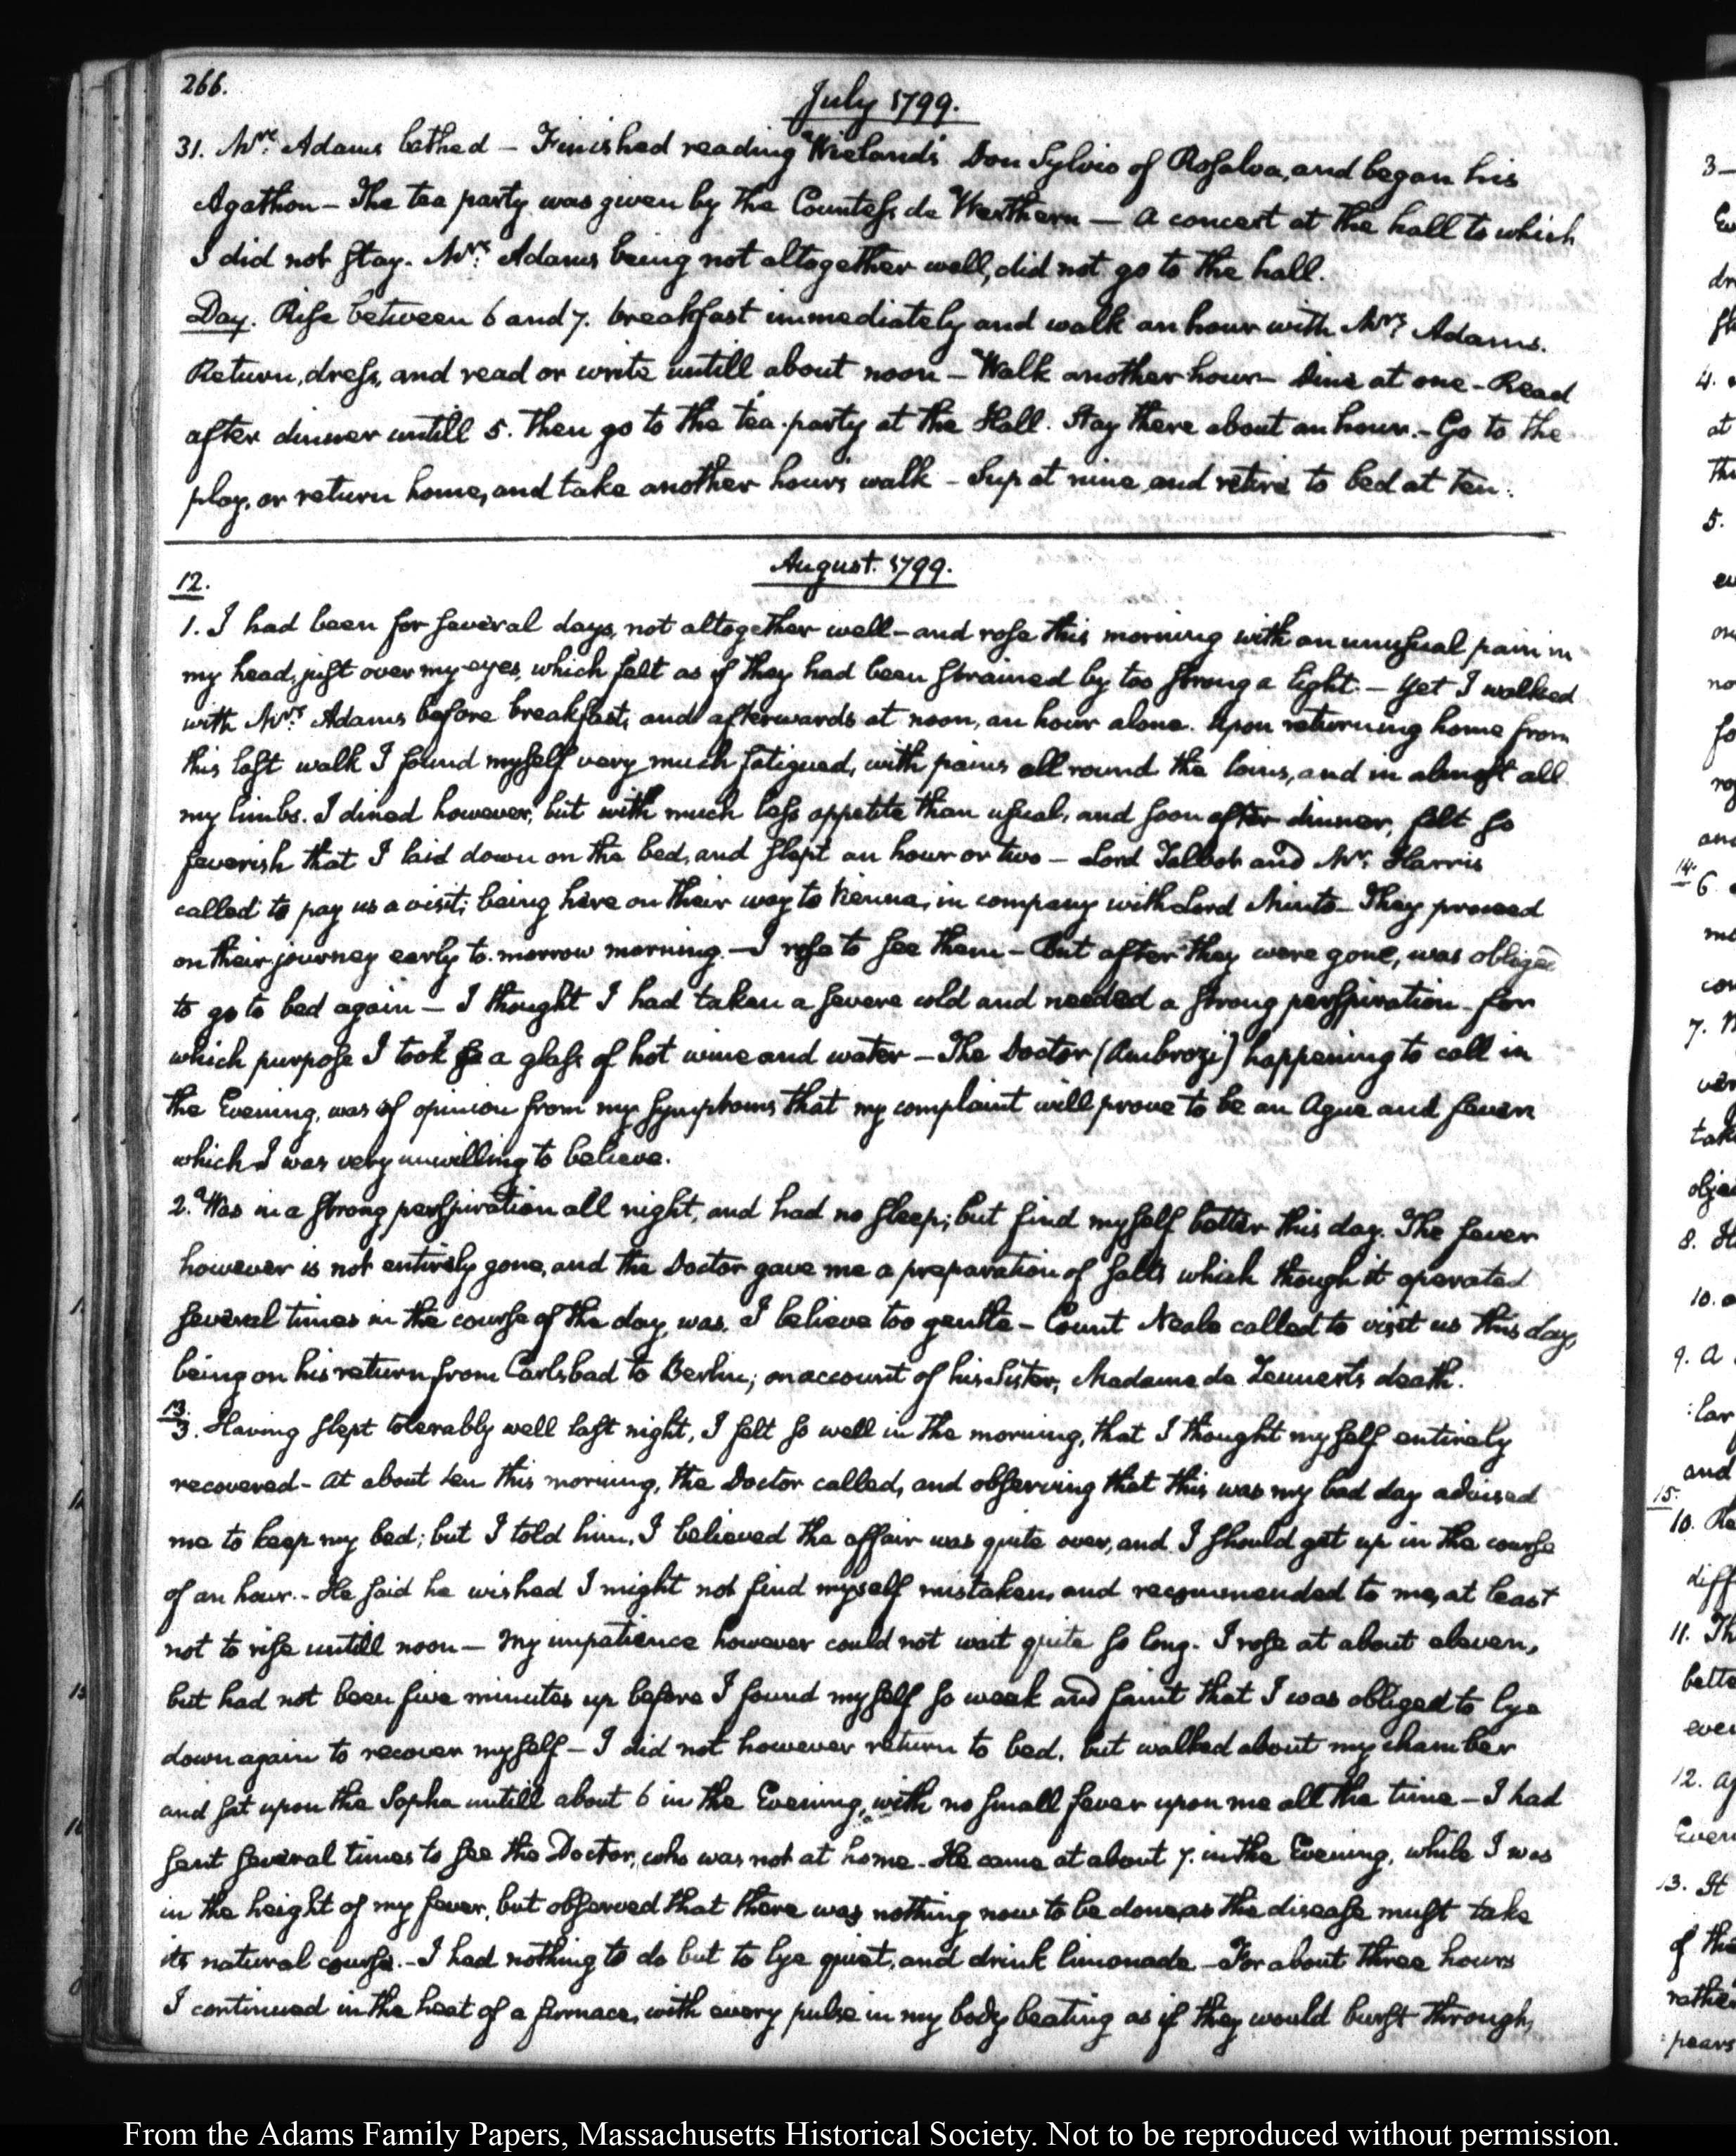 266.
July 1799.
31. Mrs. Adams bathed — Finished reading Wieland's Don Sylvio of Rosalva, and began his
Agathon — The tea party was given by the Countess de Werthern — a concert at the hall to which
I did not stay. Mrs. Adams being not altogether well, did not go to the hall.
Day. Rise between 6 and 7. breakfast immediately and walk an hour with Mrs. Adams.
Return, dress, and read or write untill about noon — Walk another hour — Dine at one — Read
after dinner untill 5. Then go to the tea-party at the Hall. Stay there about an hour. — Go to the
play, or return home, and take another hours walk — Sup at nine and retire to bed at ten.
August. 1799.
12.
1. I had been for several days, not altogether well — and rose this morning with an unusual pain in
my head, just over my eyes, which felt as if they had been strained by too strong a light. — Yet I walked
with Mrs. Adams before breakfast, and afterwards at noon, an hour alone. Upon returning home from
this last walk I found myself very much fatigued, with pains all round the loins, and in almost all
my limbs. I dined however, but with much less appetite than usual, and soon after dinner, felt so
feverish that I laid down on the bed, and slept an hour or two — Lord Talbot and Mr. Harris
called to pay us a visit; being here on their way to Vienna, in company with Lord Minto — They proceed
on their journey early to-morrow morning. — I rose to see them — But after they were gone, was obliged
to go to bed again — I thought I had taken a severe cold and needed a strong perspiration — for
which purpose I took a glass of hot wine and water — The Doctor (Ambrozi) happening to call in
the Evening, was of opinion from my symptoms that my complaint will prove to be an Ague and fever
which I was very unwilling to believe.
2. Was in a strong perspiration all night, and had no sleep; but find myself better this day. The fever
however is not entirely gone, and the Doctor gave me a preparation of salts which though it operated
several times in the course of the day, was, I believe too gentle — Count Neale called to visit us this day,
being on his return from Carlsbad to Berlin, on account of his Sister, Madame de Zeunerts death.
13.
3. Having slept tolerably well last night, I felt so well in the morning, that I thought myself entirely
recovered — At about ten this morning, the Doctor called, and observing that this was my bad day advised
me to keep my bed; but I told him, I believed the affair was quite over, and I should get up in the course
of an hour. — He said he wished I might not find myself mistaken, and recommended to me, at least
not to rise untill noon — My impatience however could not wait quite so long. I rose at about eleven,
but had not been five minutes up before I found myself so weak and faint that I was obliged to lye
down again to recover myself — I did not however return to bed, but walked about my chamber
and sat upon the Sopha untill about 6 in the Evening, with no small fever upon me all the time — I had
sent several times to see the Doctor, who was not at home. He came at about 7. in the Evening, while I was
in the height of my fever, but observed that there was nothing now to be done, as the disease must take
its natural course. — I had nothing to do but to lye quiet, and drink limonade — For about three hours
I continued in the heat of a furnace, with every pulse in my body beating as if they would burst through,
From the Adams Family Papers, Massachusetts Historical Society. Not to be reproduced without permission.